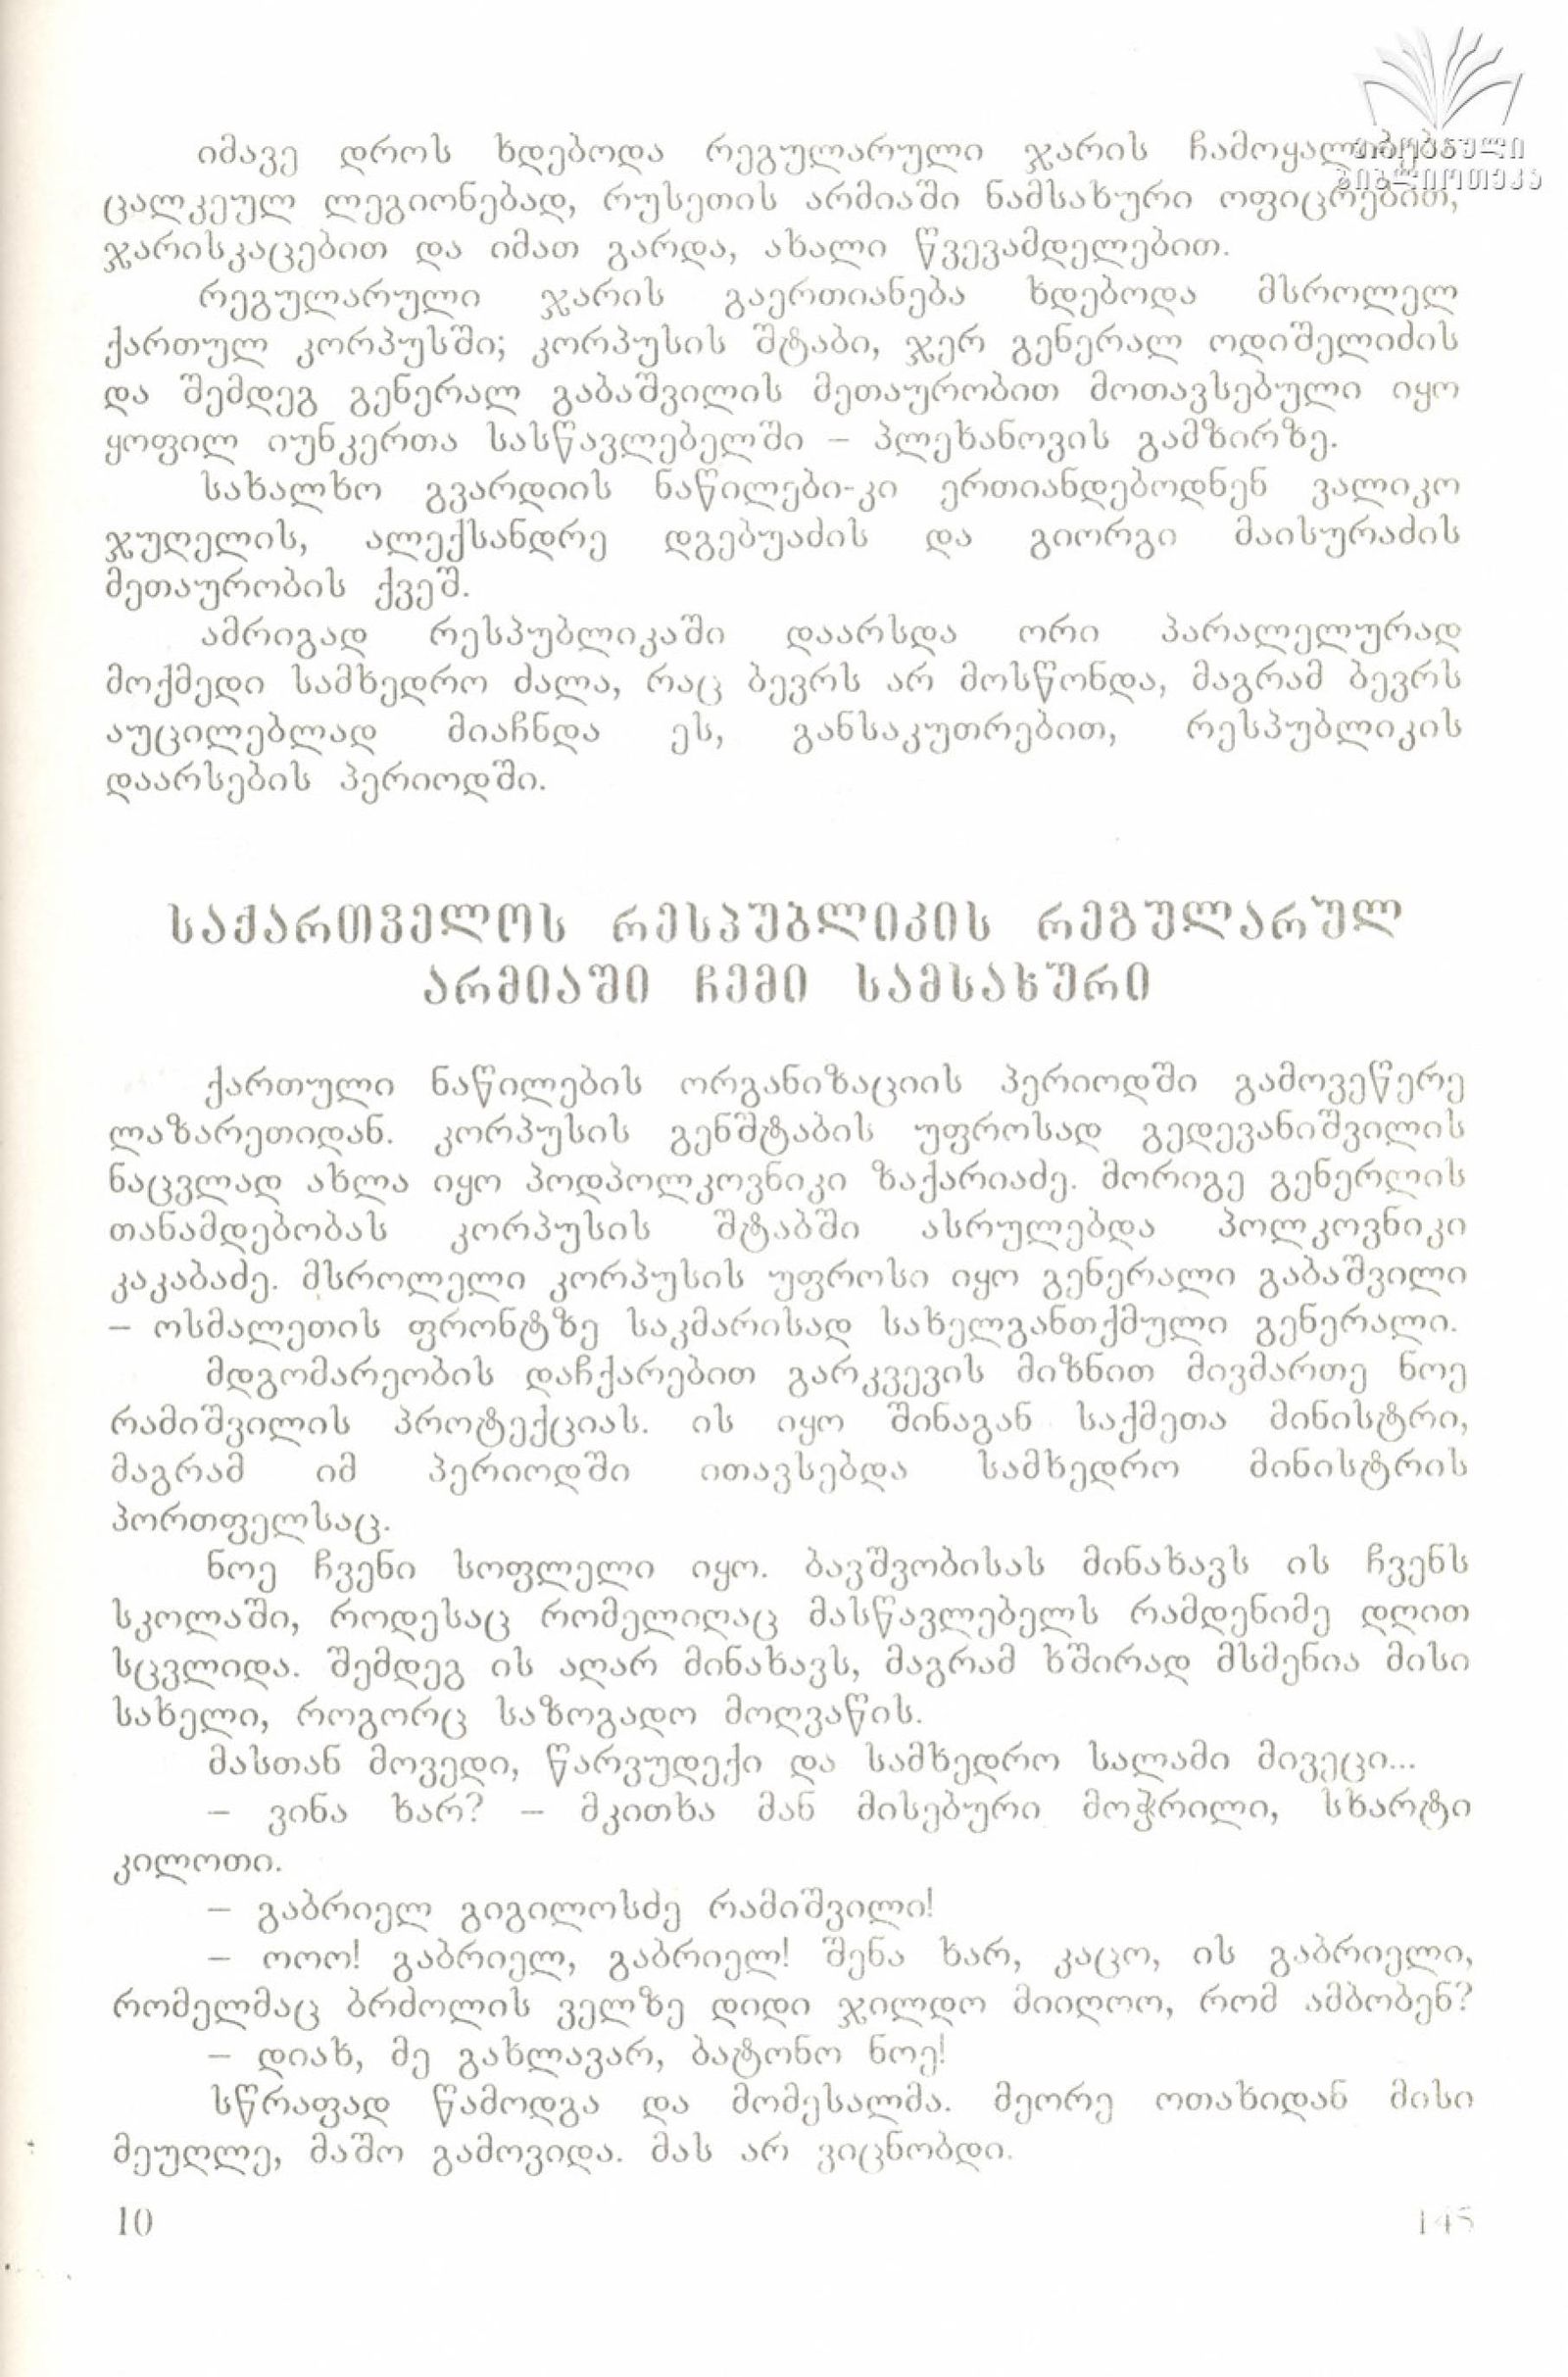 იმავე დროს ხდებოდა რეგულარული ჯარის ჩამოყალიბება
ცალკეულ ლეგიონებად, რუსეთის არმიაში ნამსახური ოფიცრებით,
ჯარისკაცებით და იმათ გარდა, ახალი წვევამდელებით.
რეგულარული ჯარის გაერთიანება ხდებოდა მსროლელ
ქართულ კორპუსში; კორპუსის შტაბი, ჯერ გენერალ ოდიშელიძის
და შემდეგ გენერალ გაბაშვილის მეთაურობით მოთავსებული იყო
ყოფილ იუნკერთა სასწავლებელში – პლეხანოვის გამზირზე.
სახალხო გვარდიის ნაწილები-კი ერთიანდებოდნენ ვალიკო
ჯუღელის, ალექსანდრე დგებუაძის და გიორგი მაისურაძის
მეთაურობის ქვეშ.
ამრიგად რესპუბლიკაში დაარსდა ორი პარალელურად
მოქმედი სამხედრო ძალა, რაც ბევრს არ მოსწონდა, მაგრამ ბევრს
აუცილებლად მიაჩნდა ეს, განსაკუთრებით, რესპუბლიკის
დაარსების პერიოდში.
საქართველოს რესპუბლიკის რეგულარულ
არმიაში ჩემი სამსახური
ქართული ნაწილების ორგანიზაციის პერიოდში გამოვეწერე
ლაზარეთიდან. კორპუსის გენშტაბის უფროსად გედევანიშვილის
ნაცვლად ახლა იყო პოდპოლკოვნიკი ზაქარიაძე. მორიგე გენერლის
თანამდებობას კორპუსის შტაბში ასრულებდა პოლკოვნიკი
კაკაბაძე. მსროლელი კორპუსის უფროსი იყო გენერალი გაბაშვილი
– ოსმალეთის ფრონტზე საკმარისად სახელგანთქმული გენერალი.
მდგომარეობის დაჩქარებით გარკვევის მიზნით მივმართე ნოე
რამიშვილის პროტექციას. ის იყო შინაგან საქმეთა მინისტრი,
მაგრამ იმ პერიოდში ითავსებდა სამხედრო მინისტრის
პორთფელსაც.
ნოე ჩვენი სოფლელი იყო. ბავშვობისას მინახავს ის ჩვენს
სკოლაში, როდესაც რომელიღაც მასწავლებელს რამდენიმე დღით
სცვლიდა. შემდეგ ის აღარ მინახავს, მაგრამ ხშირად მსმენია მისი
სახელი, როგორც საზოგადო მოღვაწის.
მასთან მოვედი, წარვუდექი და სამხედრო სალამი მივეცი...
– ვინა ხარ? – მკითხა მან მისებური მოჭრილი, სხარტი
კილოთი.
– გაბრიელ გიგილოსძე რამიშვილი!
– ოოო! გაბრიელ, გაბრიელ! შენა ხარ, კაცო, ის გაბრიელი,
რომელმაც ბრძოლის ველზე დიდი ჯილდო მიიღოო, რომ ამბობენ?
– დიახ, მე გახლავარ, ბატონო ნოე!
სწრაფად წამოდგა და მომესალმა. მეორე ოთახიდან მისი
მეუღლე, მაშო გამოვიდა. მას არ ვიცნობდი.
10 145
ეროვნული
ბიბლიოთეკა